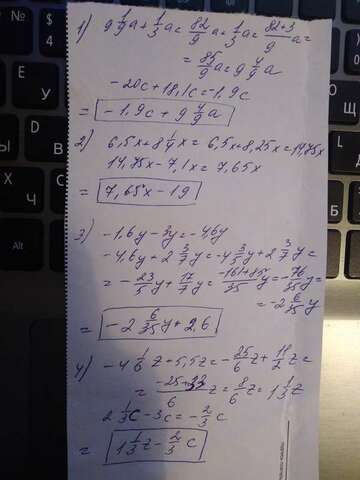 1) 9 1/9 a + 1/3 a = 82/9 a + 1/3 a = 82+3/9 a =
= 85/9 a = 9 4/9 a
- 20c + 18,1c = 1,9c
= - 1,9c + 9 4/9 a
2) 6,5x + 8 1/4 x = 6,5x + 8,25x = 14,75x
14,75x - 7,1x = 7,65x
= 7,65x - 19
3) - 1,6y - 3y = - 4,6y
- 4,6y + 2 3/7 y = - 4 3/5 y + 2 3/7 y =
= - 23/5 y + 17/7 y = -161+85/35 y = -76/35 y =
= -2 6/35 y
= - 2 6/35 y + 2,6
4) - 4 1/6 z + 5,5z = - 25/6 z + 11/2 z =
= -25+33/6 z = 8/6 z = 1 1/3 z
2 1/3 c - 3c = - 2/3 c
= 1 1/3 z - 2/3 c